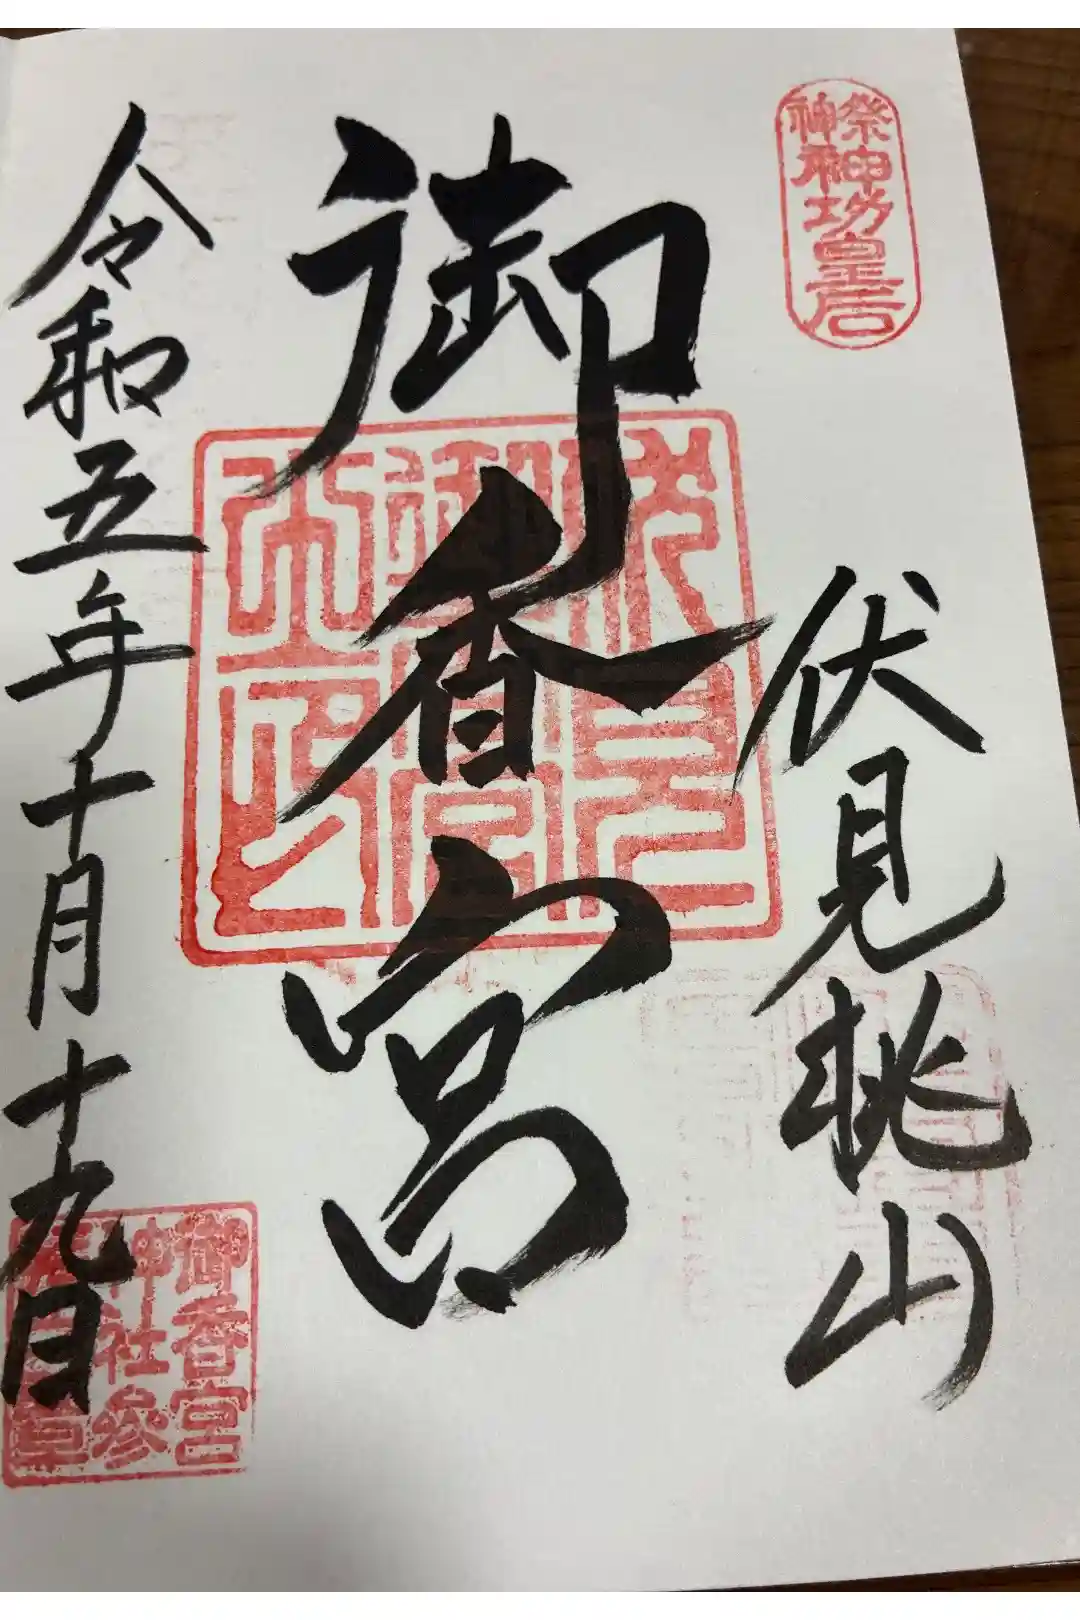 祭神
神功皇后
伏見桃山
御香宮
令和五年十月十九日
御香宮
神社参